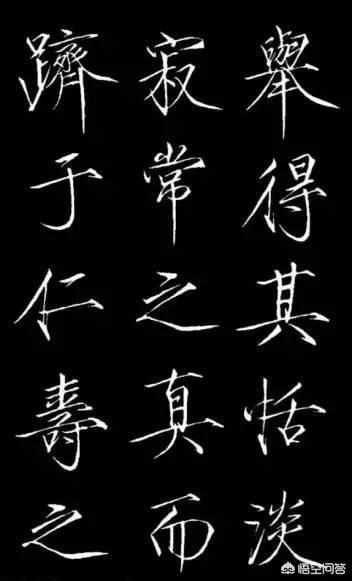 舉得其恬淡
寂常之真而
躋于仁壽之
悟空问答